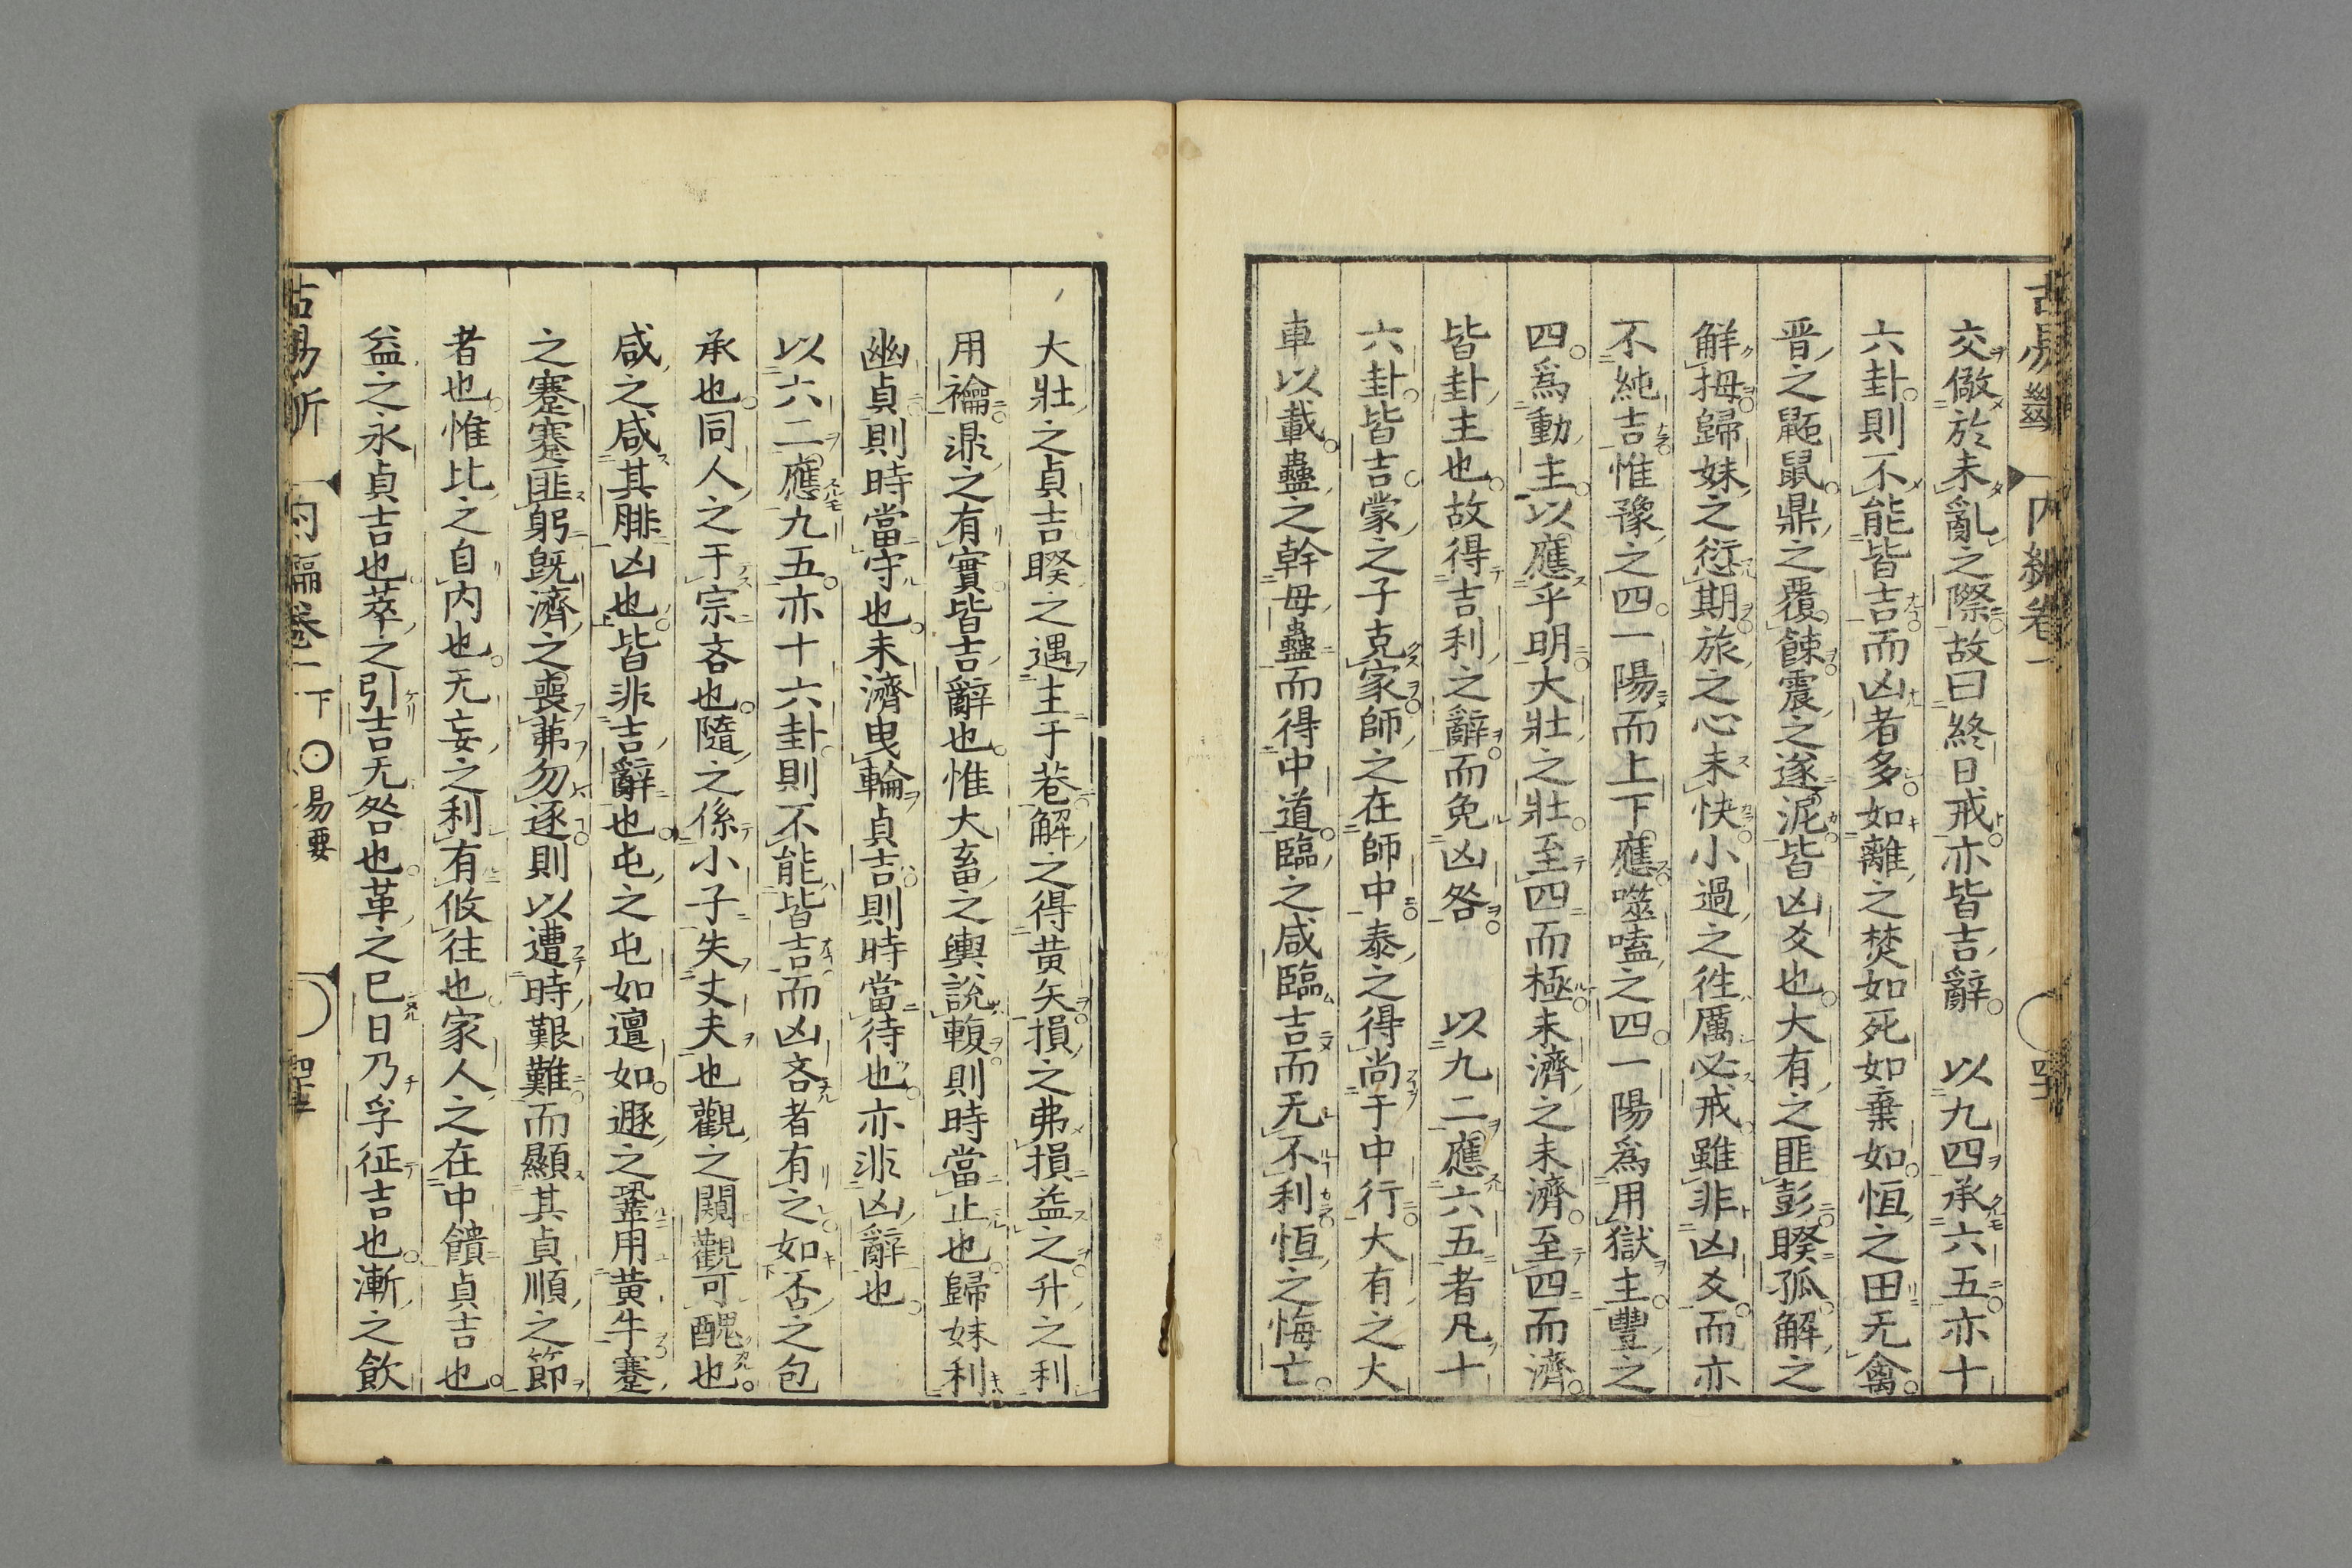 交儆於未亂之際故曰終日戒亦皆吉辭　以九四承六五亦十
六卦則不能皆吉而凶者多如離之焚如死如棄如恒之田无禽
晋之鼫鼠鼎之覆餗震之遂泥皆凶爻也大有之匪彭睽孤解之
解拇歸妹之愆期旅之心未快小過之徃厲必戒雖非凶爻而亦
不純吉惟豫之四一陽而上下應噬嗑之四一陽爲用獄主豐之
四爲動主以應乎明大壯之壯至四而極未濟之未濟至四而濟
皆卦主也故得吉利之辭而免凶咎　以九二應六五者凡十
六卦皆吉蒙之子克家師之在師中泰之得尚于中行大有之大
車以載蠱之幹母蠱而得中道臨之咸臨吉而无不利恒之悔亡
大壯之貞吉睽之遇主于巷解之得黃矢損之弗損益之升之利
用禴鼎之有實皆吉辭也惟大畜之輿說輹則時當止也歸妹利
幽貞則時當守也未濟曳輪貞吉則時當待也亦非凶辭也
以六二應九五亦十六卦則不能皆吉而凶吝者有之如否之包
承也同人之于宗吝也隨之係小子失丈夫也觀之闚觀可醜也
咸之咸其腓凶也皆非吉辭也屯之屯如邅如遯之鞏用黃牛蹇
之蹇蹇匪躬旣濟之喪茀勿逐則以遭時艱難而顯其貞順之節
者也惟比之自內也无妄之利有攸往也家人之在中饋貞吉也
益之永貞吉也萃之引吉无咎也革之巳日乃孚征吉也漸之飲
易　內編卷一　下　易要